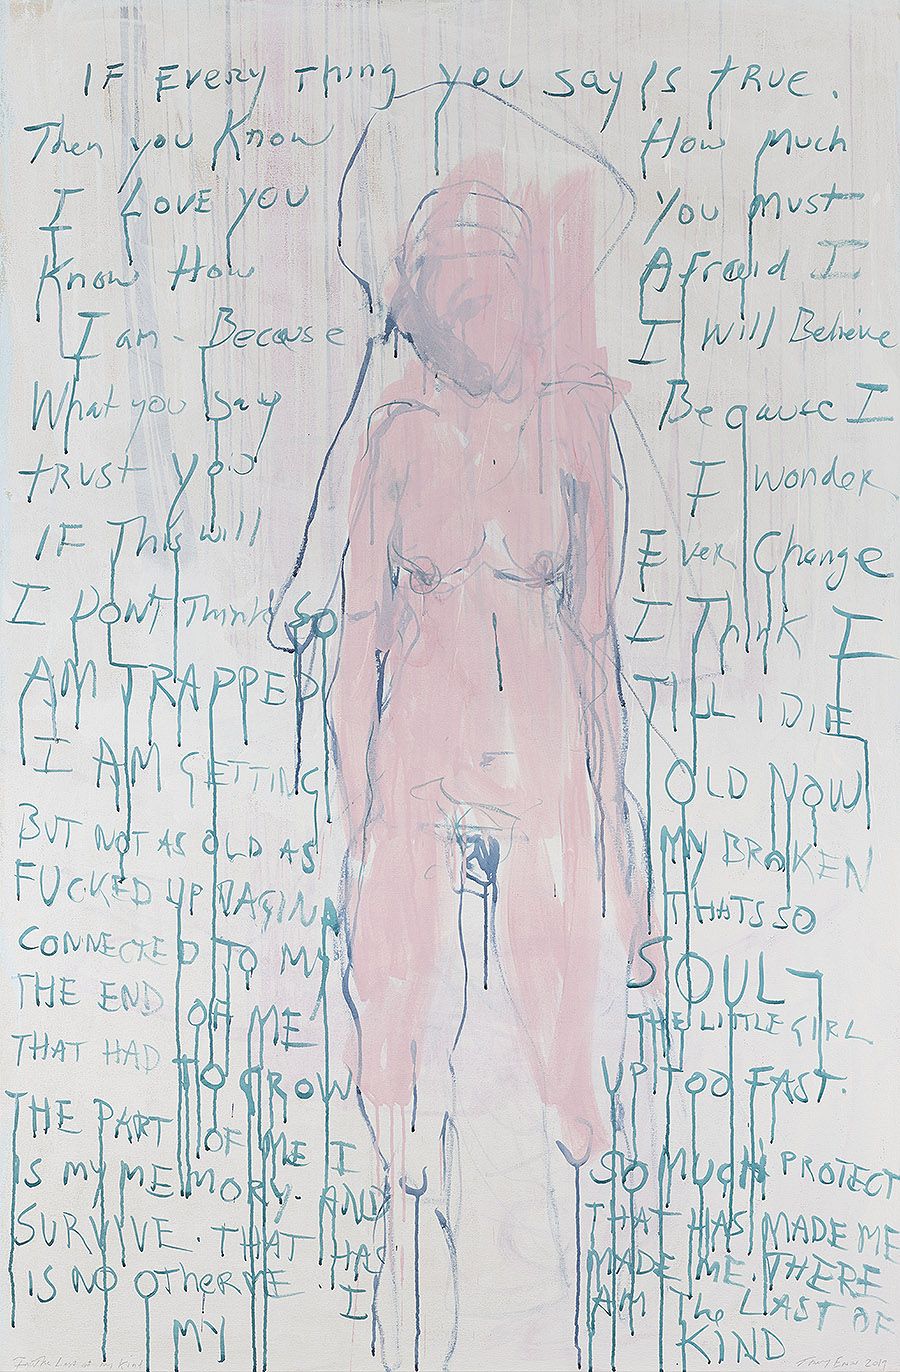 IF Every Thing you say Is true.
Then you Know How Much
I LOVE you You Must
Know How Afraid I
I am - Because I Will Believe
What you Say Because I
trust you I wonder
IF This will Ever Change
I Dont Think so I Think I
AM TRAPPED TILL I DIE
I AM GETTING OLD NOW
BUT NOT AS OLD AS MY BROKEN
FUCKED UP VAGINA THATS SO
CONNECTED TO MY SOUL
THE END OF ME THE LITTLE GIRL
THAT HAD TO GROW UP TOO FAST.
THE PART OF ME I SO MUCH PROTECT
IS MY MEMORY. AND THAT HAS MADE ME
SURVIVE. THAT HAS MADE ME. THERE
IS NO OTHER ME I AM The LAST OF
MY KIND
The Last of my Kind 2019